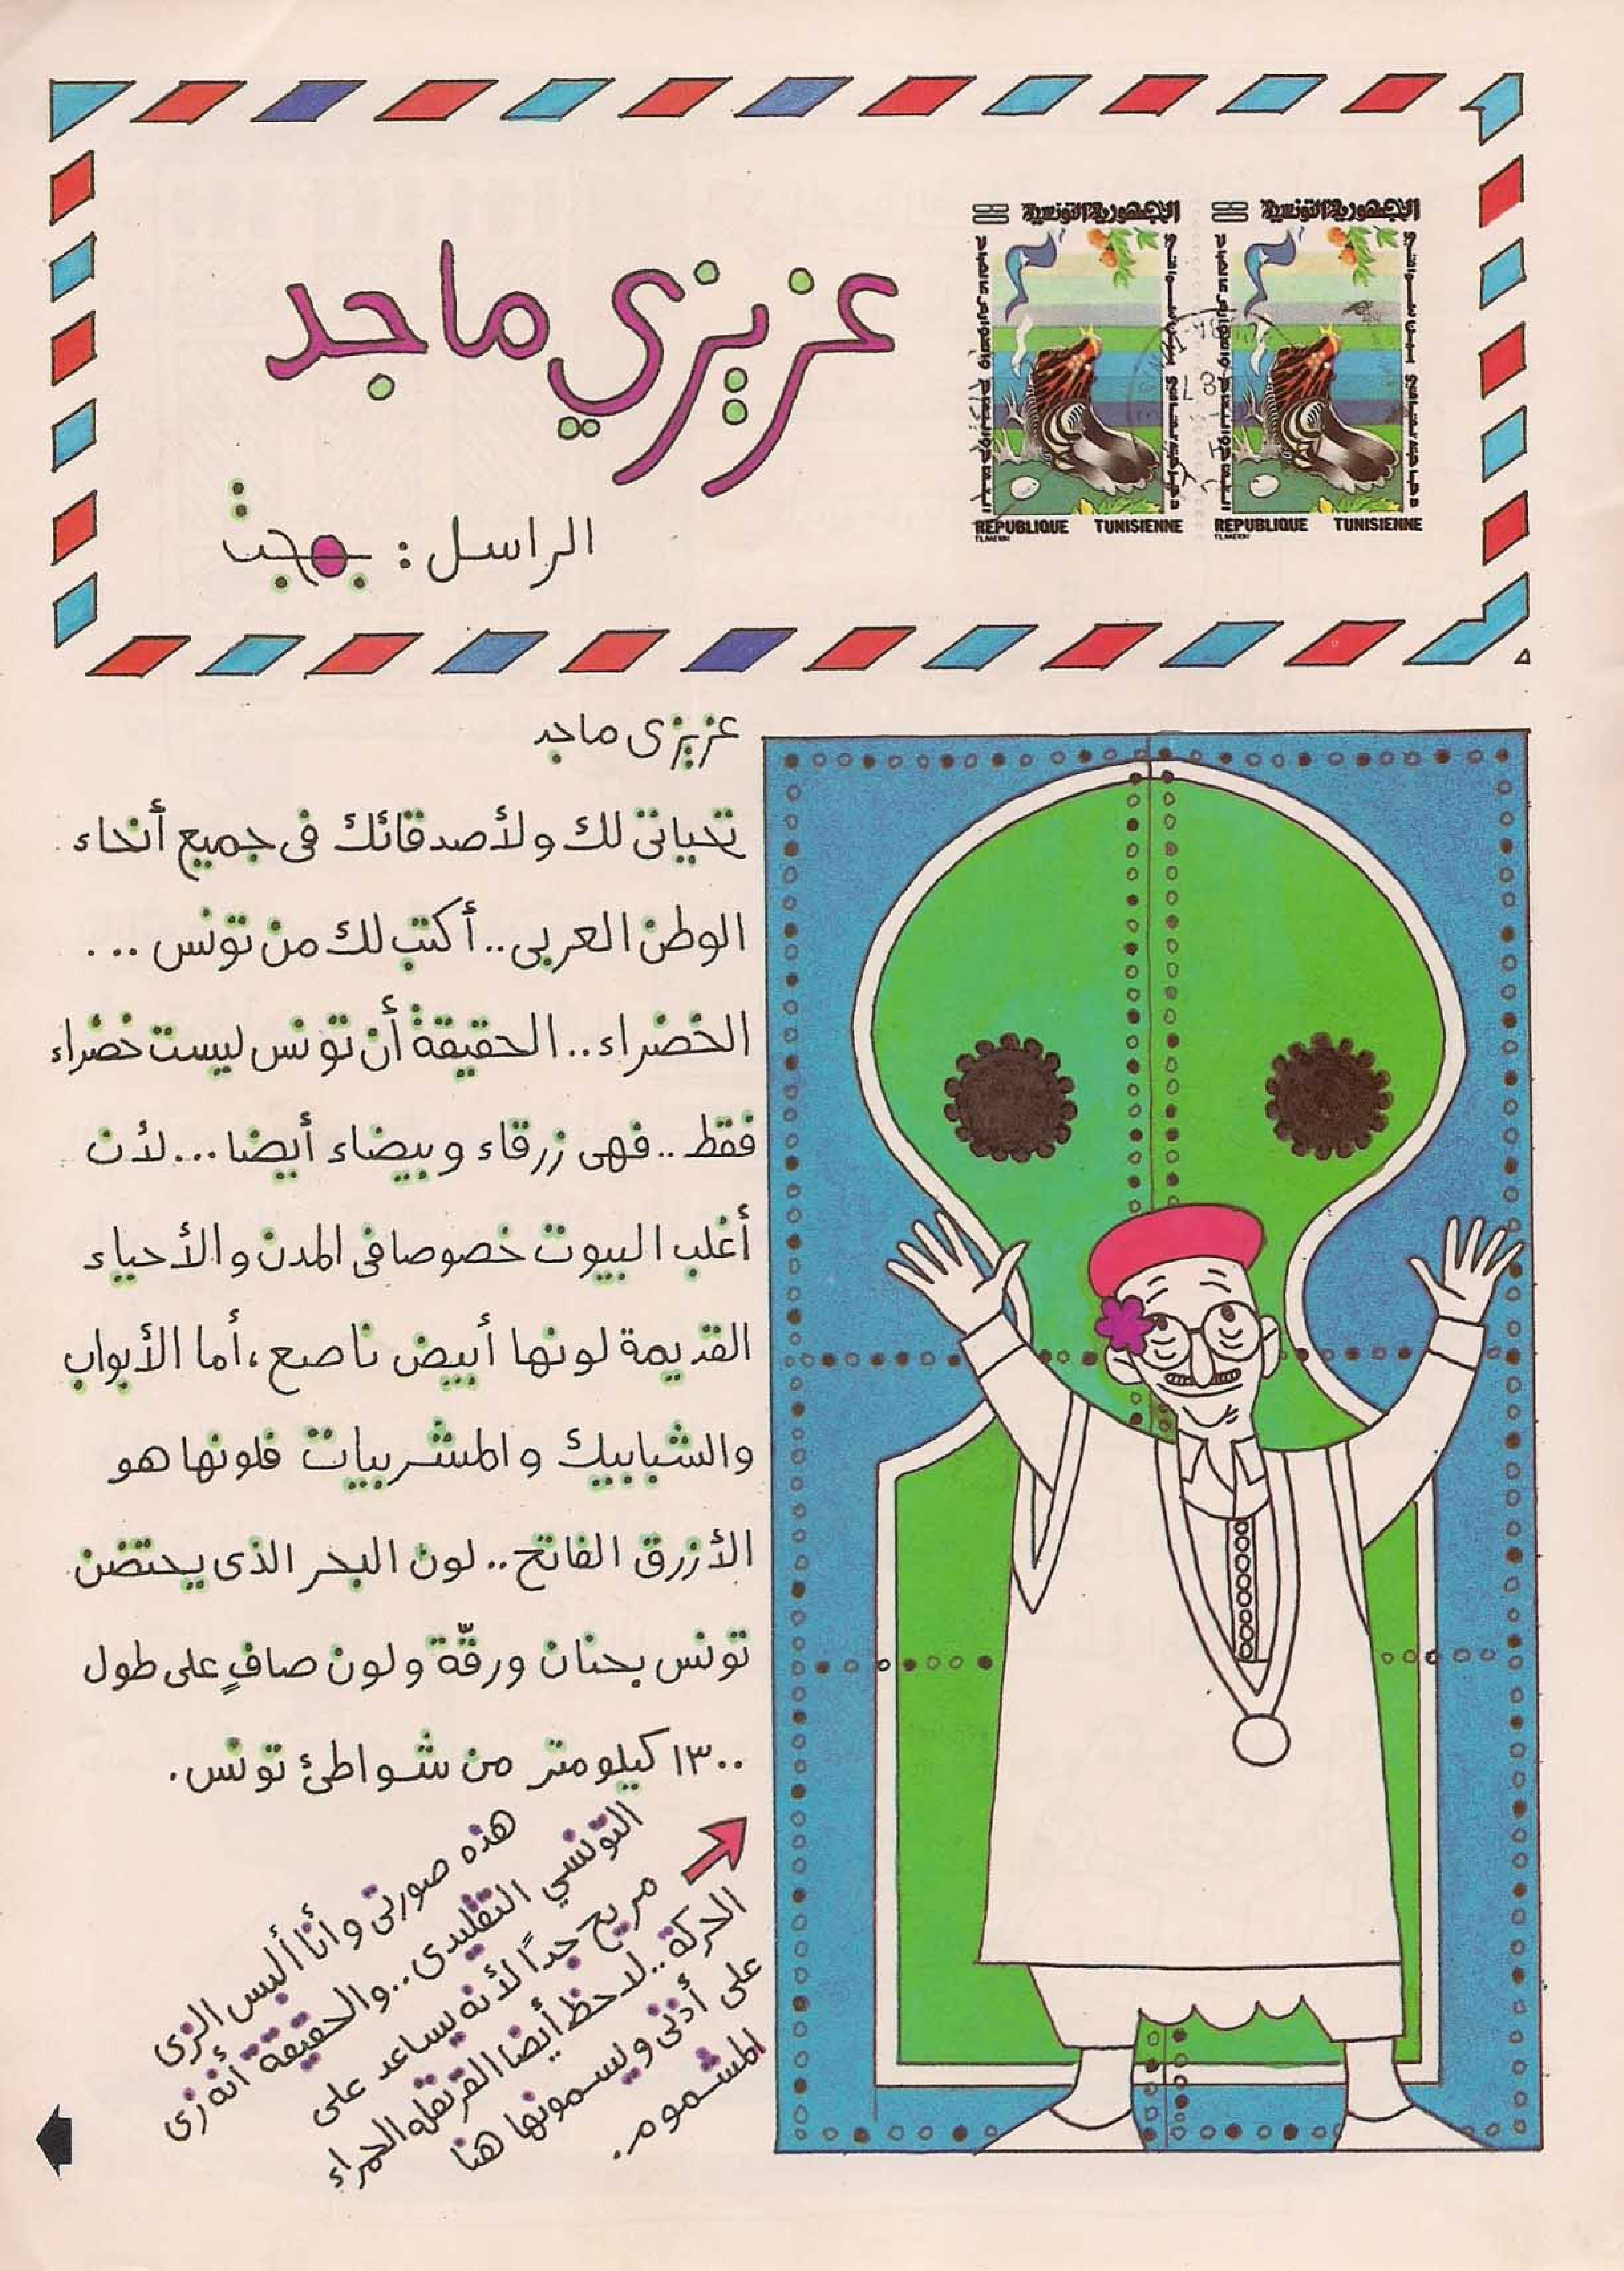 عزيزي ماجد
الجمهورية التونسية
الجمهورية التونسية
REPUBLIQUE TUNISIENNE
REPUBLIQUE TUNISIENNE
الراسل : بهجت
عزيزى ماجد
تحياتى لك ولأصدقائك فى جميع أنحاء
الوطن العربى.. أكتب لك من تونس ...
الخضراء.. الحقيقة أن تونس ليست خضراء
فقط.. فهى زرقاء وبيضاء أيضا... لأن
أغلب البيوت خصوصا فى المدن والأحياء
القديمة لونها أبيض ناصع، أما الأبواب
والشبابيك والمشربيات فلونها هو
الأزرق الفاتح.. لون البحر الذى يحتضن
تونس بحنان ورقّة ولون صافٍ على طول
١٣٠٠ كيلومتر من شواطئ تونس.
هذه صورتى وأنا ألبس الزى
التونسي التقليدى.. والحقيقة أنه زى
مريح جداً لأنه يساعد على
الحركة.. لاحظ أيضا القرنفله الحمراء
على أذنى ويسمونها هنا
المشموم.